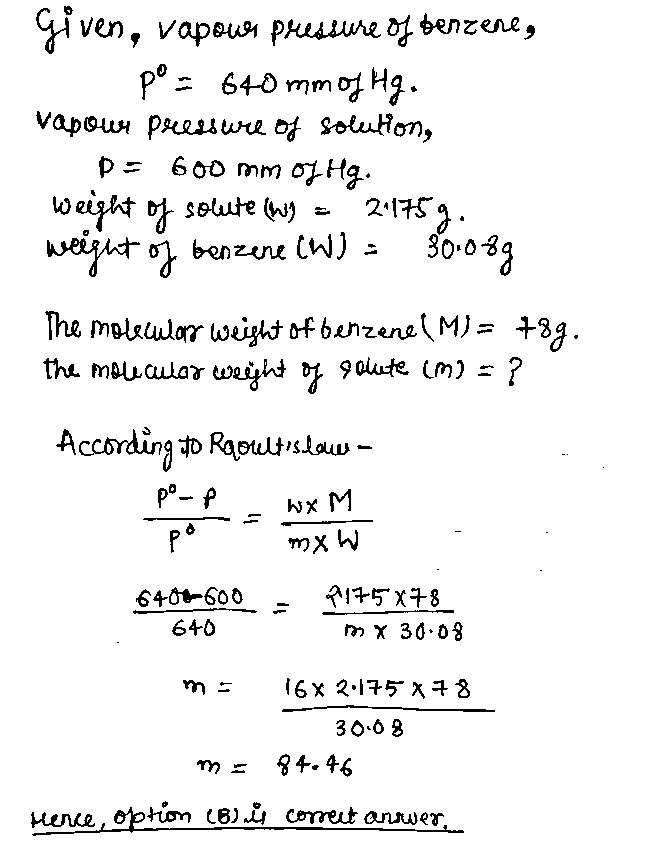 Given, vapour pressure of benzene,
P⁰ = 640 mm of Hg.
vapour pressure of solution,
P = 600 mm of Hg.
weight of solute (w) = 2.175 g.
weight of benzene (W) = 30.08g
The molecular weight of benzene (M) = 78g.
the molecular weight of solute (m) = ?
According to Raoult's law –
P⁰ – P / P⁰ = w x M / m x W
640-600 / 640 = 2175 x 78 / m x 30.08
m = 16 x 2.175 x 78 / 30.08
m = 84.46
Hence, option (B) is correct answer.